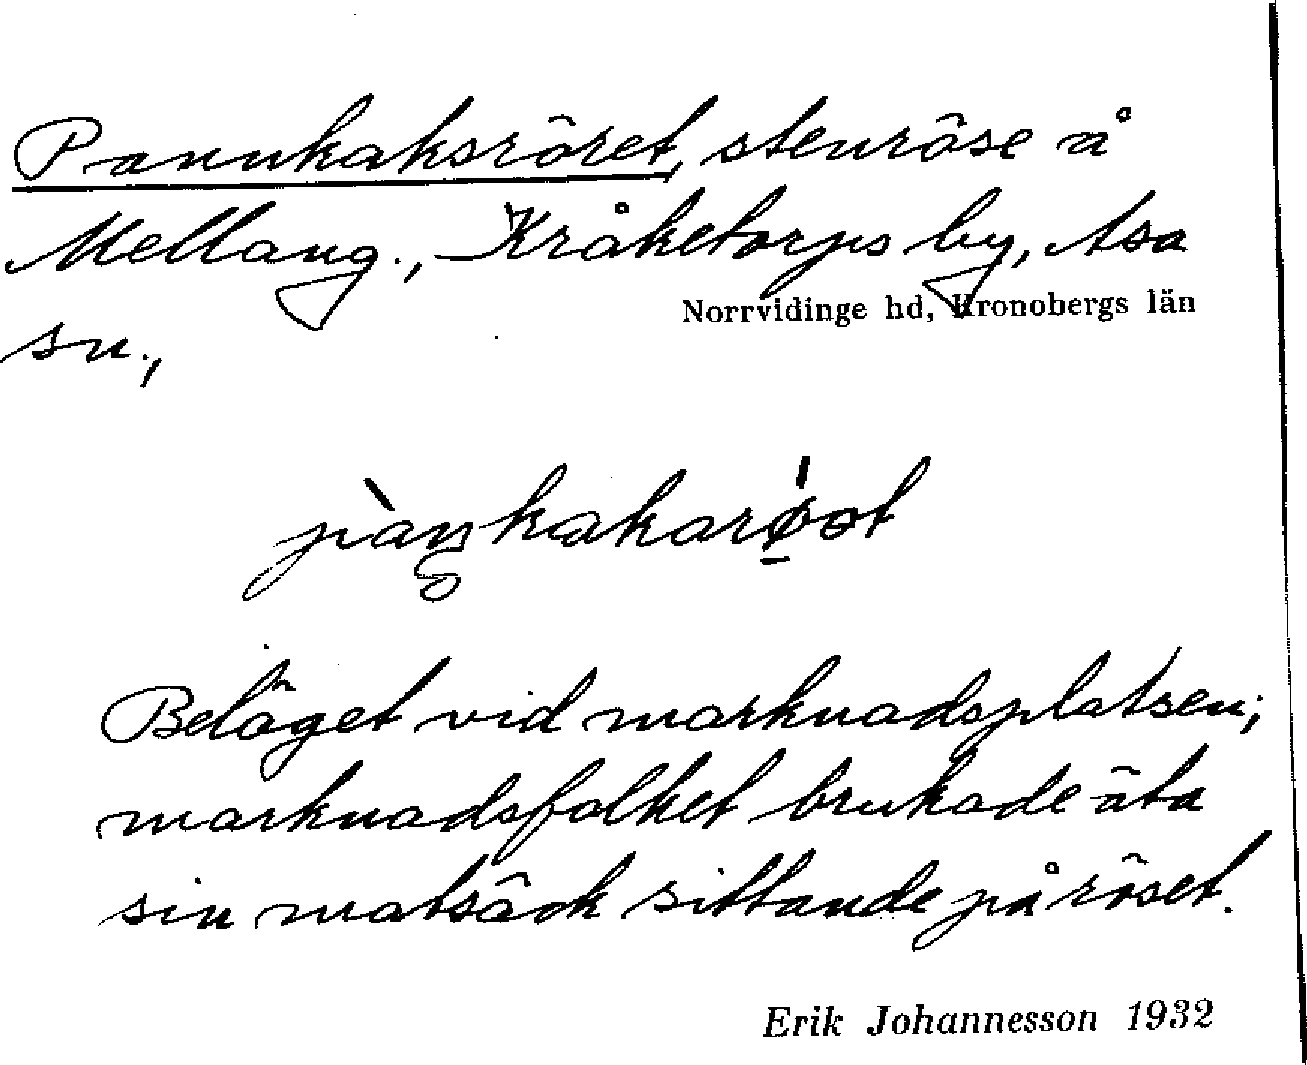 Pannkaksröret, stenröse å
Mellang., Kråketorps by, Asa
Norrvidinge hd, Kronobergs län
sn.,
pàŋkakarǿ̱ət
Beläget vid marknadsplatsen;
marknadsfolket brukade äta
sin matsäck sittande på röset.
Erik Johannesson 1932